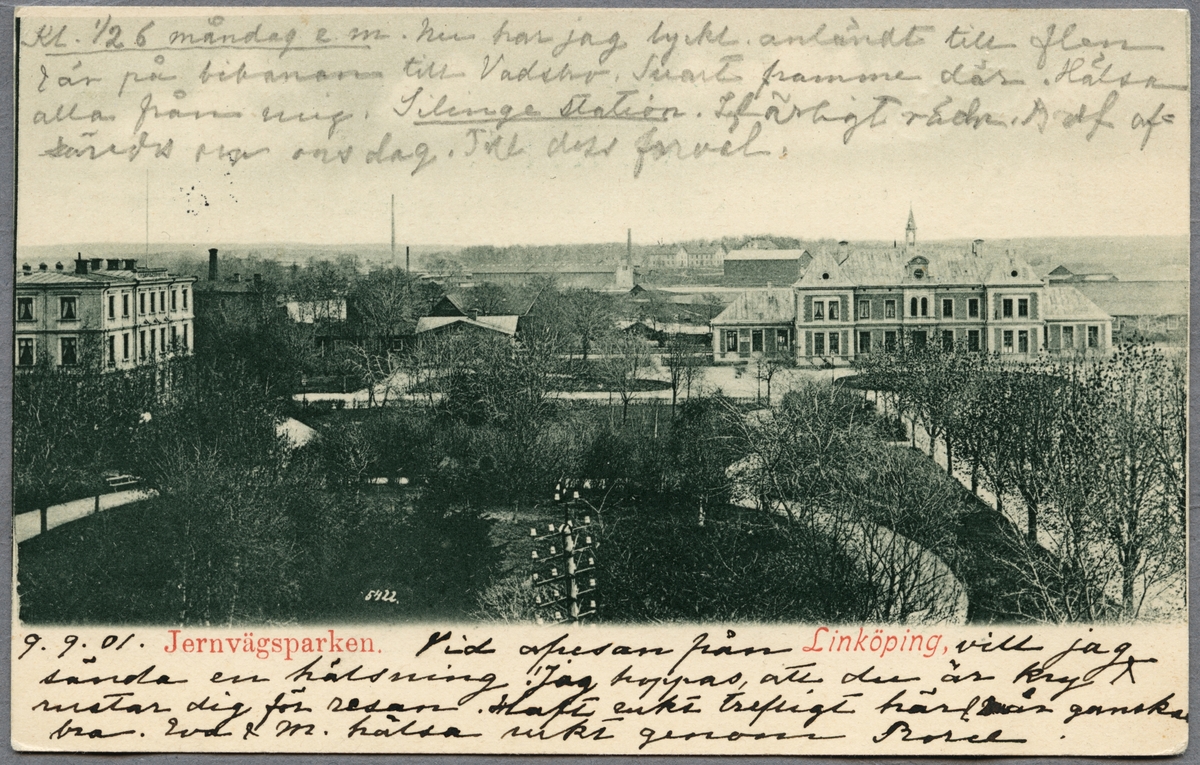 Kl. 1/2 6 måndag e. m. Nu har jag lyckl. anländt till Flen
& är på bibanan till Vadsbro. Snart framme där. Hälsa
alla från mig. Silinge station. Härligt väder. af-
onsdag. Till dess farväl.
5422.
9.9.01. Jernvägsparken. Vid afresan från Linköping, vill jag
sända en hälsning. Jag hoppas, att du är kry &
rustar dig för resan. Haft rikt trefligt här & mår ganska
bra. Eva & M. hälsa rikt genom Borel